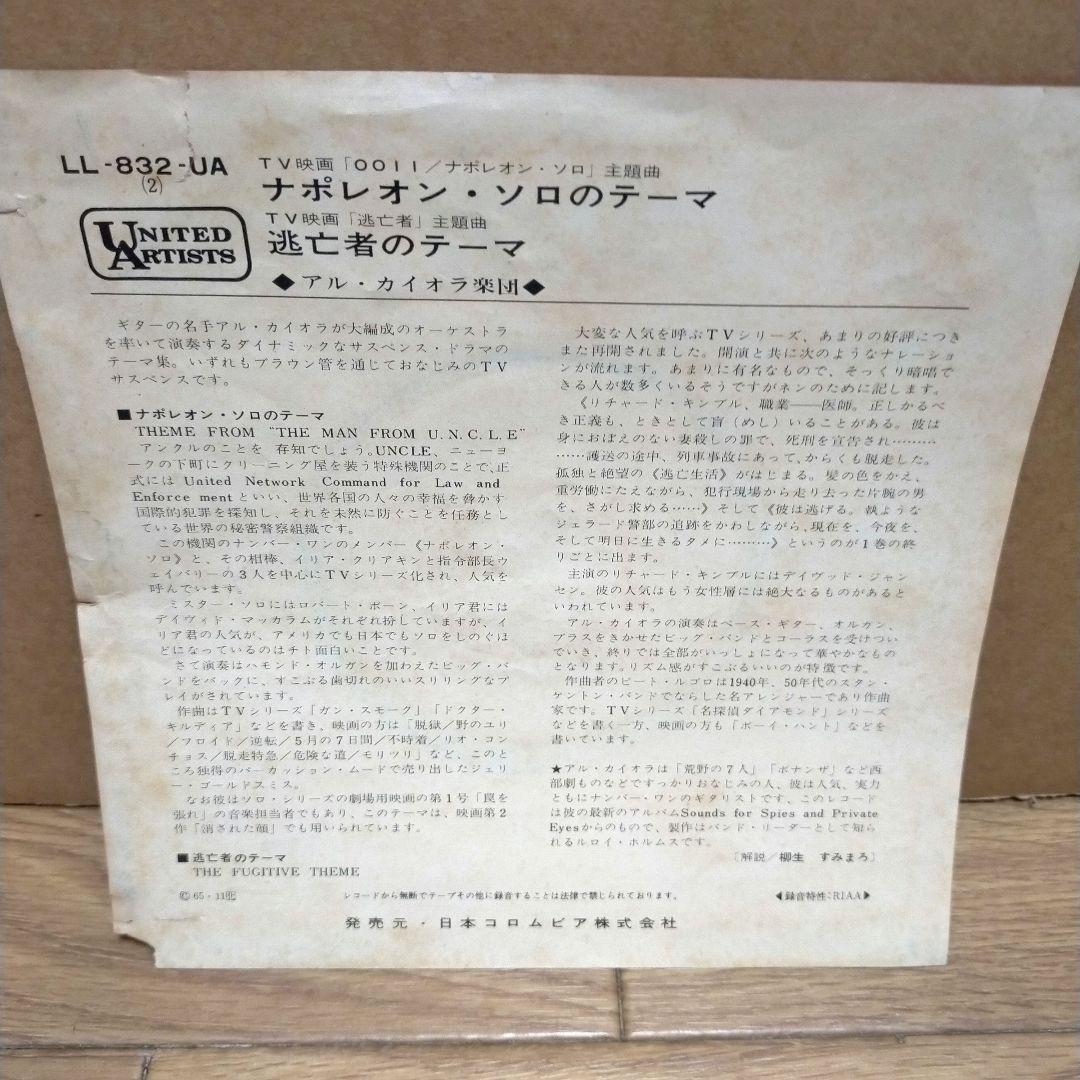 LL-832-UA
(2)
UNITED ARTISTS
TV映画「0011/ナポレオン・ソロ」主題曲
ナポレオン・ソロのテーマ
TV映画「逃亡者」主題曲
逃亡者のテーマ
◆アル・カイオラ楽団◆
ギターの名手アル・カイオラが大編成のオーケストラ
を率いて演奏するダイナミックなサスペンス・ドラマの
テーマ集。いずれもブラウン管を通じておなじみのTV
サスペンスです。
■ナポレオン・ソロのテーマ
THEME FROM "THE MAN FROM U.N.C.L.E"
アンクルのことを 存知でしょう。UNCLE、ニューヨ
ークの下町にクリーニング屋を装う特殊機関のことで、正
式には United Network Command for Law and
Enforce mentといい、世界各国の人々の幸福を脅かす
国際的犯罪を探知し、それを未然に防ぐことを任務とし
ている世界の秘密警察組織です。
この機関のナンバー・ワンのメンバー《ナポレオン・
ソロ》と、その相棒、イリア・クリアキンと指令部長ウ
ェイバリーの3人を中心にTVシリーズ化され、人気を
呼んでいます。
ミスター・ソロにはロバート・ボーン、イリア君には
デイヴィド・マッカラムがそれぞれ扮していますが、イ
リア君の人気が、アメリカでも日本でもソロをしのぐほ
どになっているのはチト面白いことです。
さて演奏はハモンド・オルガンを加えたビッグ・バ
ンドをバックに、すこぶる歯切れのいいスリリングなプ
レイがされています。
作曲はTVシリーズ「ガン・スモーク」「ドクター・
キルディア」などを書き、映画の方は「脱獄/野のユリ
/フロイド/逆転/5月の7日間/不時着/リオ・コン
チョス/脱走特急/危険な道/モリツリ」など、このと
ころ独得のパーカッション・ムードで売り出したジェリ
ー・ゴールドスミス。
なお彼はソロ・シリーズの劇場用映画の第1号「罠を
張れ」の音楽担当者でもあり、このテーマは、映画第2
作「消された顔」でも用いられています。
■逃亡者のテーマ
THE FUGITIVE THEME
大変な人気を呼ぶTVシリーズ、あまりの好評につき
また再開されました。開演と共に次のようなナレーショ
ンが流れます。あまりに有名なもので、そっくり暗唱で
きる人が数多くいるそうですがネンのために記します。
《リチャード・キンブル、職業――医師。正しかるべ
き正義も、ときとして盲(めし)いることがある。彼は
身におぼえのない妻殺しの罪で、死刑を宣告され………
……護送の途中、列車事故にあって、からくも脱走した。
孤独と絶望の《逃亡生活》がはじまる。髪の色をかえ、
重労働にたえながら、犯行現場から走り去った片腕の男
を、さがし求める……》そして《彼は逃げる。執ような
ジェラード警部の追跡をかわしながら、現在を、今夜を、
そして明日に生きるタメに………》というのが1巻の終
りごとに出ます。
主演のリチャード・キンブルにはデイヴッド・ジャン
セン。彼の人気はもう女性層には絶大なるものがあると
いわれています。
アル・カイオラの演奏はベース・ギター、オルガン、
ブラスをきかせたビッグ・バンドとコーラスを受けつい
でいき、終りでは全部がいっしょになって華やかなもの
となります。リズム感がすこぶるいいのが特徴です。
作曲者のピート・ルゴロは1940年、50年代のスタン・
ケントン・バンドでならした名アレンジャーであり作曲
家です。TVシリーズ「名探偵ダイアモンド」シリーズ
などを書く一方、映画の方も「ボーイ・ハント」などを
書いています。
★アル・カイオラは「荒野の7人」「ボナンザ」など西
部劇ものなどですっかりおなじみの人、彼は人気、実力
ともにナンバー・ワンのギタリストです、このレコード
は彼の最新のアルバムSounds for Spies and Private
Eyesからのもので、製作はバンド・リーダーとして知ら
れるルロイ・ホルムスです。
〔解説/柳生 すみまろ〕
Ⓒ65・11
レコードから無断でテープその他に録音することは法律で禁じられております。
◀録音特性:RIAA▶
発売元・日本コロムビア株式会社